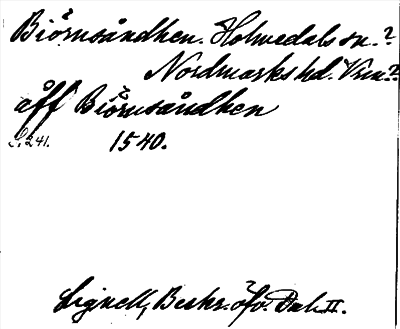 Biörnsåndhen. Holmedals sn.?
Nordmarks hd. Vrm.?
åff Biörnsåndhen
S. 241. 1540.
Lignell, Beskr. öfv. Dal. II.